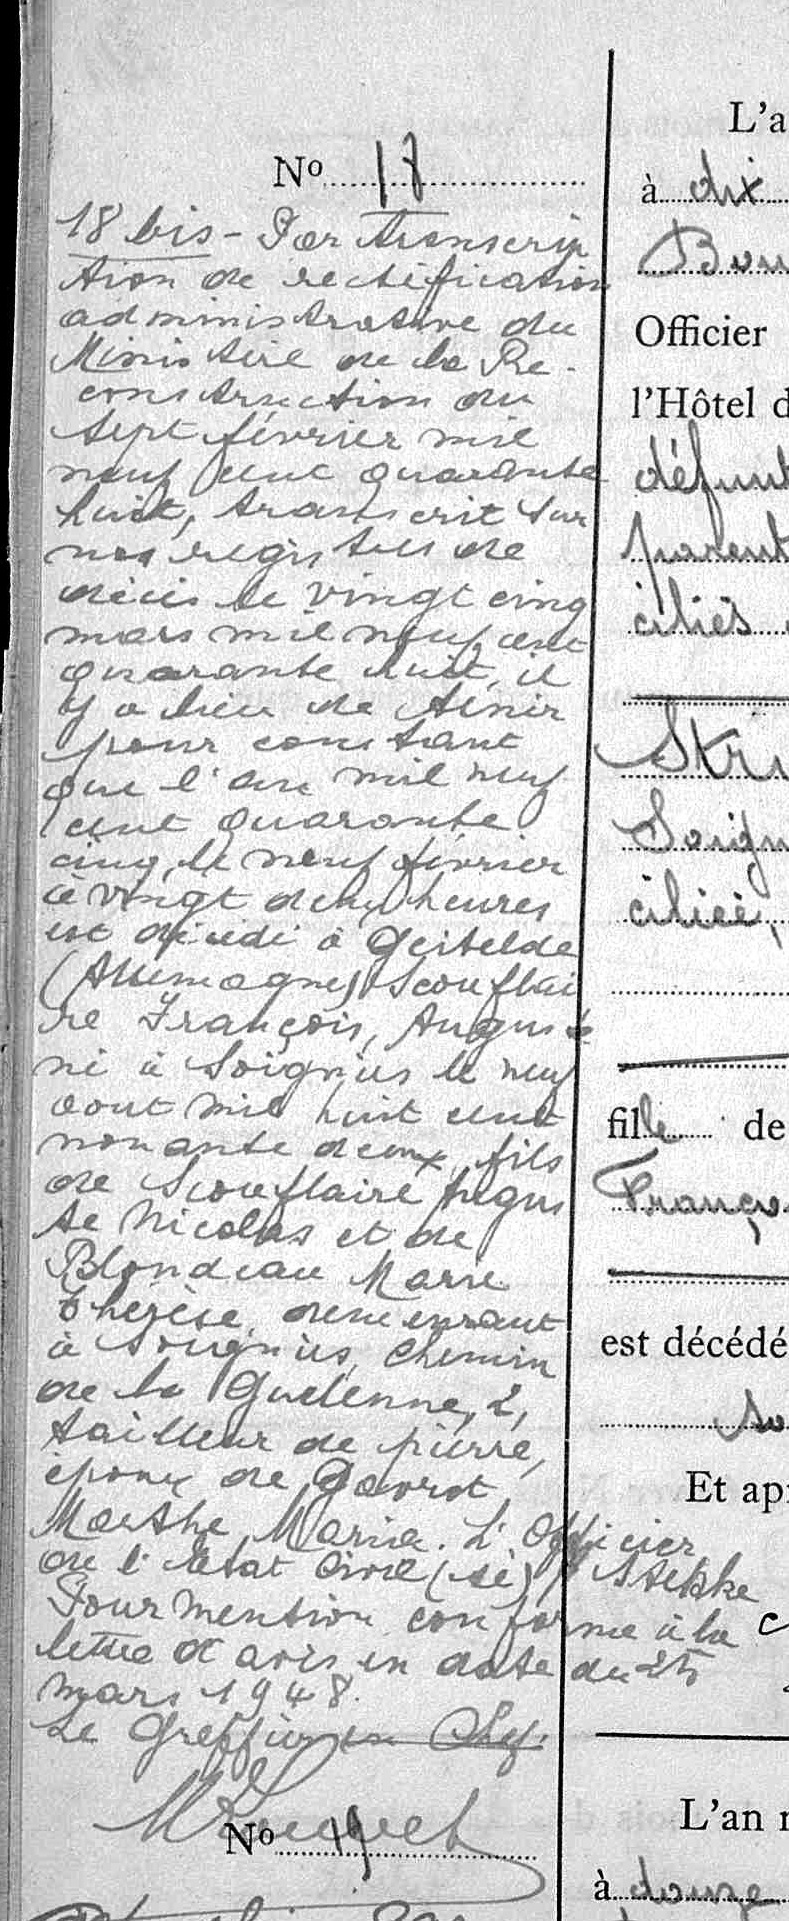 No 17
18 bis - Par transcrip
tion de rectification
administrative du
Ministère de la Re-
construction du
sept février mil
neuf cent quarante
huit, transcrit sur
nos registres de
décès le vingt cinq
mars mil neuf cent
quarante huit, il
y a lieu de tenir
pour constant
que l'an mil neuf
cent quarante
cinq, le neuf février
à vingt deux heures
est décédé à Geitelde
(Allemagne) Scouflai
re François, Auguste
né à Soignies le neuf
août mil huit cent
nonante deux, fils
de Scouflaire Augus
te Nicolas et de
Blondeau Marie
Thérèse, demeurant
à Soignies, Chemin
de la Guelenne, 2,
tailleur de pierre,
époux de Gavrot
Marthe, Maria. L'Officier
de l'Etat Civil (sé) Stekke
Pour mention conforme à la
lettre d'avis en date du 25
mars 1948.
Le Greffier en Chef.
No 19
L'a
à dix
Bou
Officier
l'Hôtel d
défunt
parent
ciliés
Stri
Soign
ciliée,
fille de
Franço
est décédé
so
Et apr
L'an n
à douze